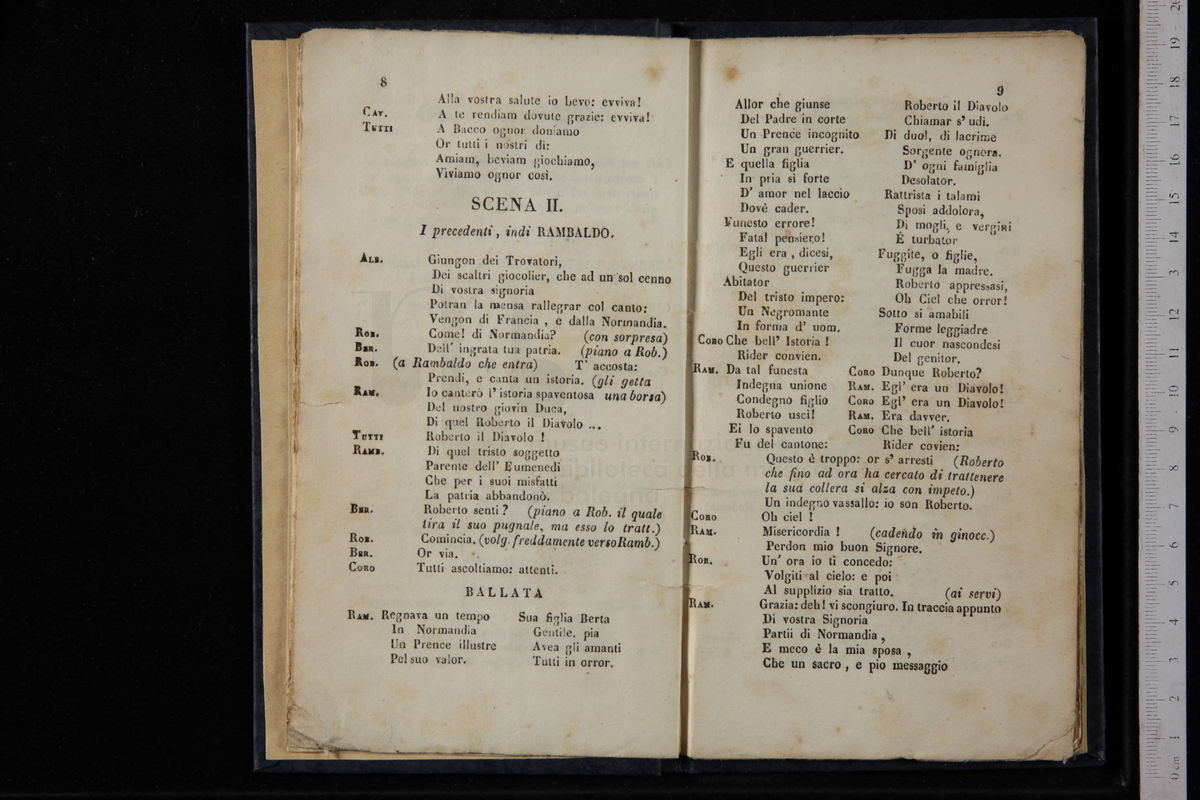 8
Alla vostra salute io bevo: evviva!
CAV. A te rendiam dovute grazie: evviva!
TUTTI A Bacco ognor doniamo
Or tutti i nostri dì:
Amiam, beviam giochiamo,
Viviamo ognor così.
SCENA II.
I precedenti, indi RAMBALDO.
ALB. Giungon dei Trovatori,
Dei scaltri giocolier, che ad un sol cenno
Di vostra signoria
Potran la mensa rallegrar col canto:
Vengon di Francia, e dalla Normandia.
ROB. Come! di Normandia? (con sorpresa)
BER. Dell' ingrata tua patria. (piano a Rob.)
ROB. (a Rambaldo che entra) T' accosta:
Prendi, e canta un istoria. (gli getta
RAM. Io canterò l' istoria spaventosa una borsa)
Del nostro giovin Duca,
Di quel Roberto il Diavolo ...
TUTTI Roberto il Diavolo !
RAMB. Di quel tristo soggetto
Parente dell' Eumenedi
Che per i suoi misfatti
La patria abbandonò.
BER. Roberto senti ? (piano a Rob. il quale
tira il suo pugnale, ma esso lo tratt.)
ROB. Comincia. (volg. freddamente verso Ramb.)
BER. Or via.
CORO Tutti ascoltiamo: attenti.
BALLATA
RAM. Regnava un tempo
In Normandia
Un Prence illustre
Pel suo valor.
Sua figlia Berta
Gentile, pia
Avea gli amanti
Tutti in orror.
9
Allor che giunse
Del Padre in corte
Un Prence incognito
Un gran guerrier.
E quella figlia
In pria sì forte
D' amor nel laccio
Dovè cader.
Funesto errore!
Fatal pensiero!
Egli era , dicesi,
Questo guerrier
Abitator
Del tristo impero:
Un Negromante
In forma d' uom.
CORO Che bell' Istoria !
Rider convien.
RAM. Da tal funesta
Indegna unione
Condegno figlio
Roberto uscì!
Ei lo spavento
Fu del cantone:
Roberto il Diavolo
Chiamar s' udì.
Di duol, di lacrime
Sorgente ognora.
D' ogni famiglia
Desolator.
Rattrista i talami
Sposi addolora,
Di mogli, e vergini
É turbator
Fuggite, o figlie,
Fugga la madre.
Roberto appressasi,
Oh Ciel che orror!
Sotto si amabili
Forme leggiadre
Il cuor nascondesi
Del genitor.
CORO Dunque Roberto?
RAM. Egl' era un Diavolo!
CORO Egl' era un Diavolo!
RAM. Era davver.
CORO Che bell' istoria
Rider covien:
ROB. Questo è troppo: or s' arresti (Roberto
che fino ad ora ha cercato di trattenere
la sua collera si alza con impeto.)
Un indegno vassallo: io son Roberto.
CORO Oh ciel !
RAM. Misericordia ! (cadendo in ginocc.)
Perdon mio buon Signore.
ROB. Un' ora io ti concedo:
Volgiti al cielo: e poi
Al supplizio sia tratto. (ai servi)
RAM. Grazia: deh! vi scongiuro. In traccia appunto
Di vostra Signoria
Partii di Normandia ,
E meco è la mia sposa ,
Che un sacro , e pio messaggio